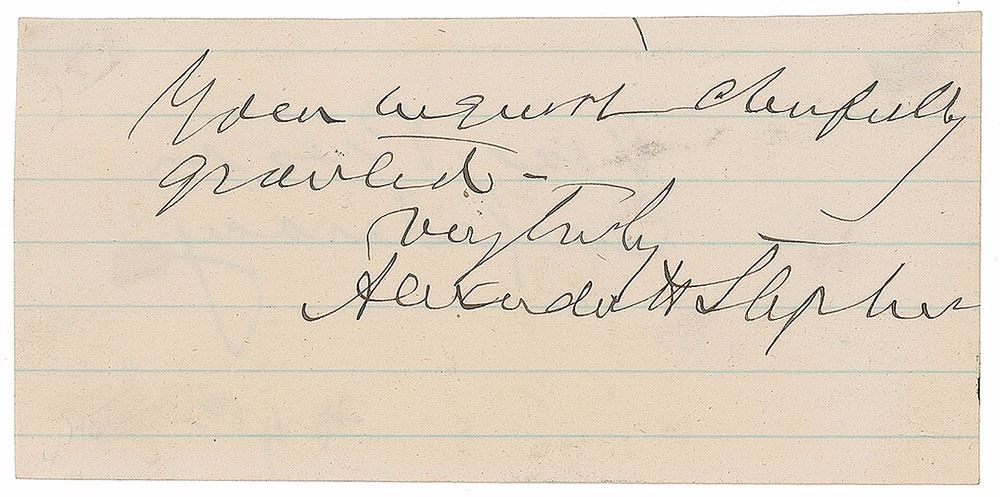 Your request cheerfully
granted -
Very truly
Alexander H Stephens